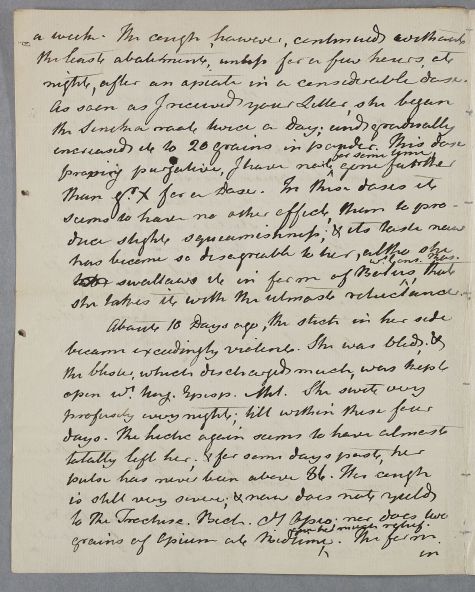 a week. The cough, however, continued without
the least abatement, unless for a few hours, at
night, after an opiate in a considerable dose.
As soon as I received your Letter, she began
the Seneka root twice a Day; and gradually
increased it to 20 grains in powder. This dose
proving purgative, I have not, for some time, gone further
than gr. X for a Dose. In these doses it
seems to have no other effect, than to pro-
duce slight squeamishness; & its taste now
has become so disagreeable to her, altho she
swallows it in form of Bolus, wt. Cons. Ros. that
she takes it with the utmost reluctance.
About 10 Days ago, the stitch in her side
became exceedingly violent. She was bled: &
the blister, which discharged much, was kept
open wt. Ung. Epispa. Mit. She swets very
profusely every night; till within these few
days. The hectic again seems to have almost
totally left her; & for some days past, her
pulse has never been above 86. Her cough
is still very severe; & now does not yield
to the Trochisc. Bech. cum Opio; nor does two
grains of Opium at Bedtime, now bid much relief. The form
in